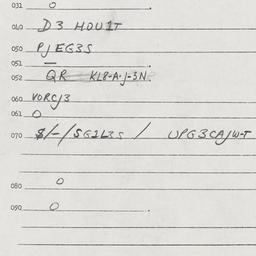 031 O
040 D3 HOU1T
050 PJEG3S
051 —
052 QR KL8-A.J-3N.
060 VORCJ3
061 O
070 $/-/SG2L3S / UPG3CAJW-T
080 O
090 O